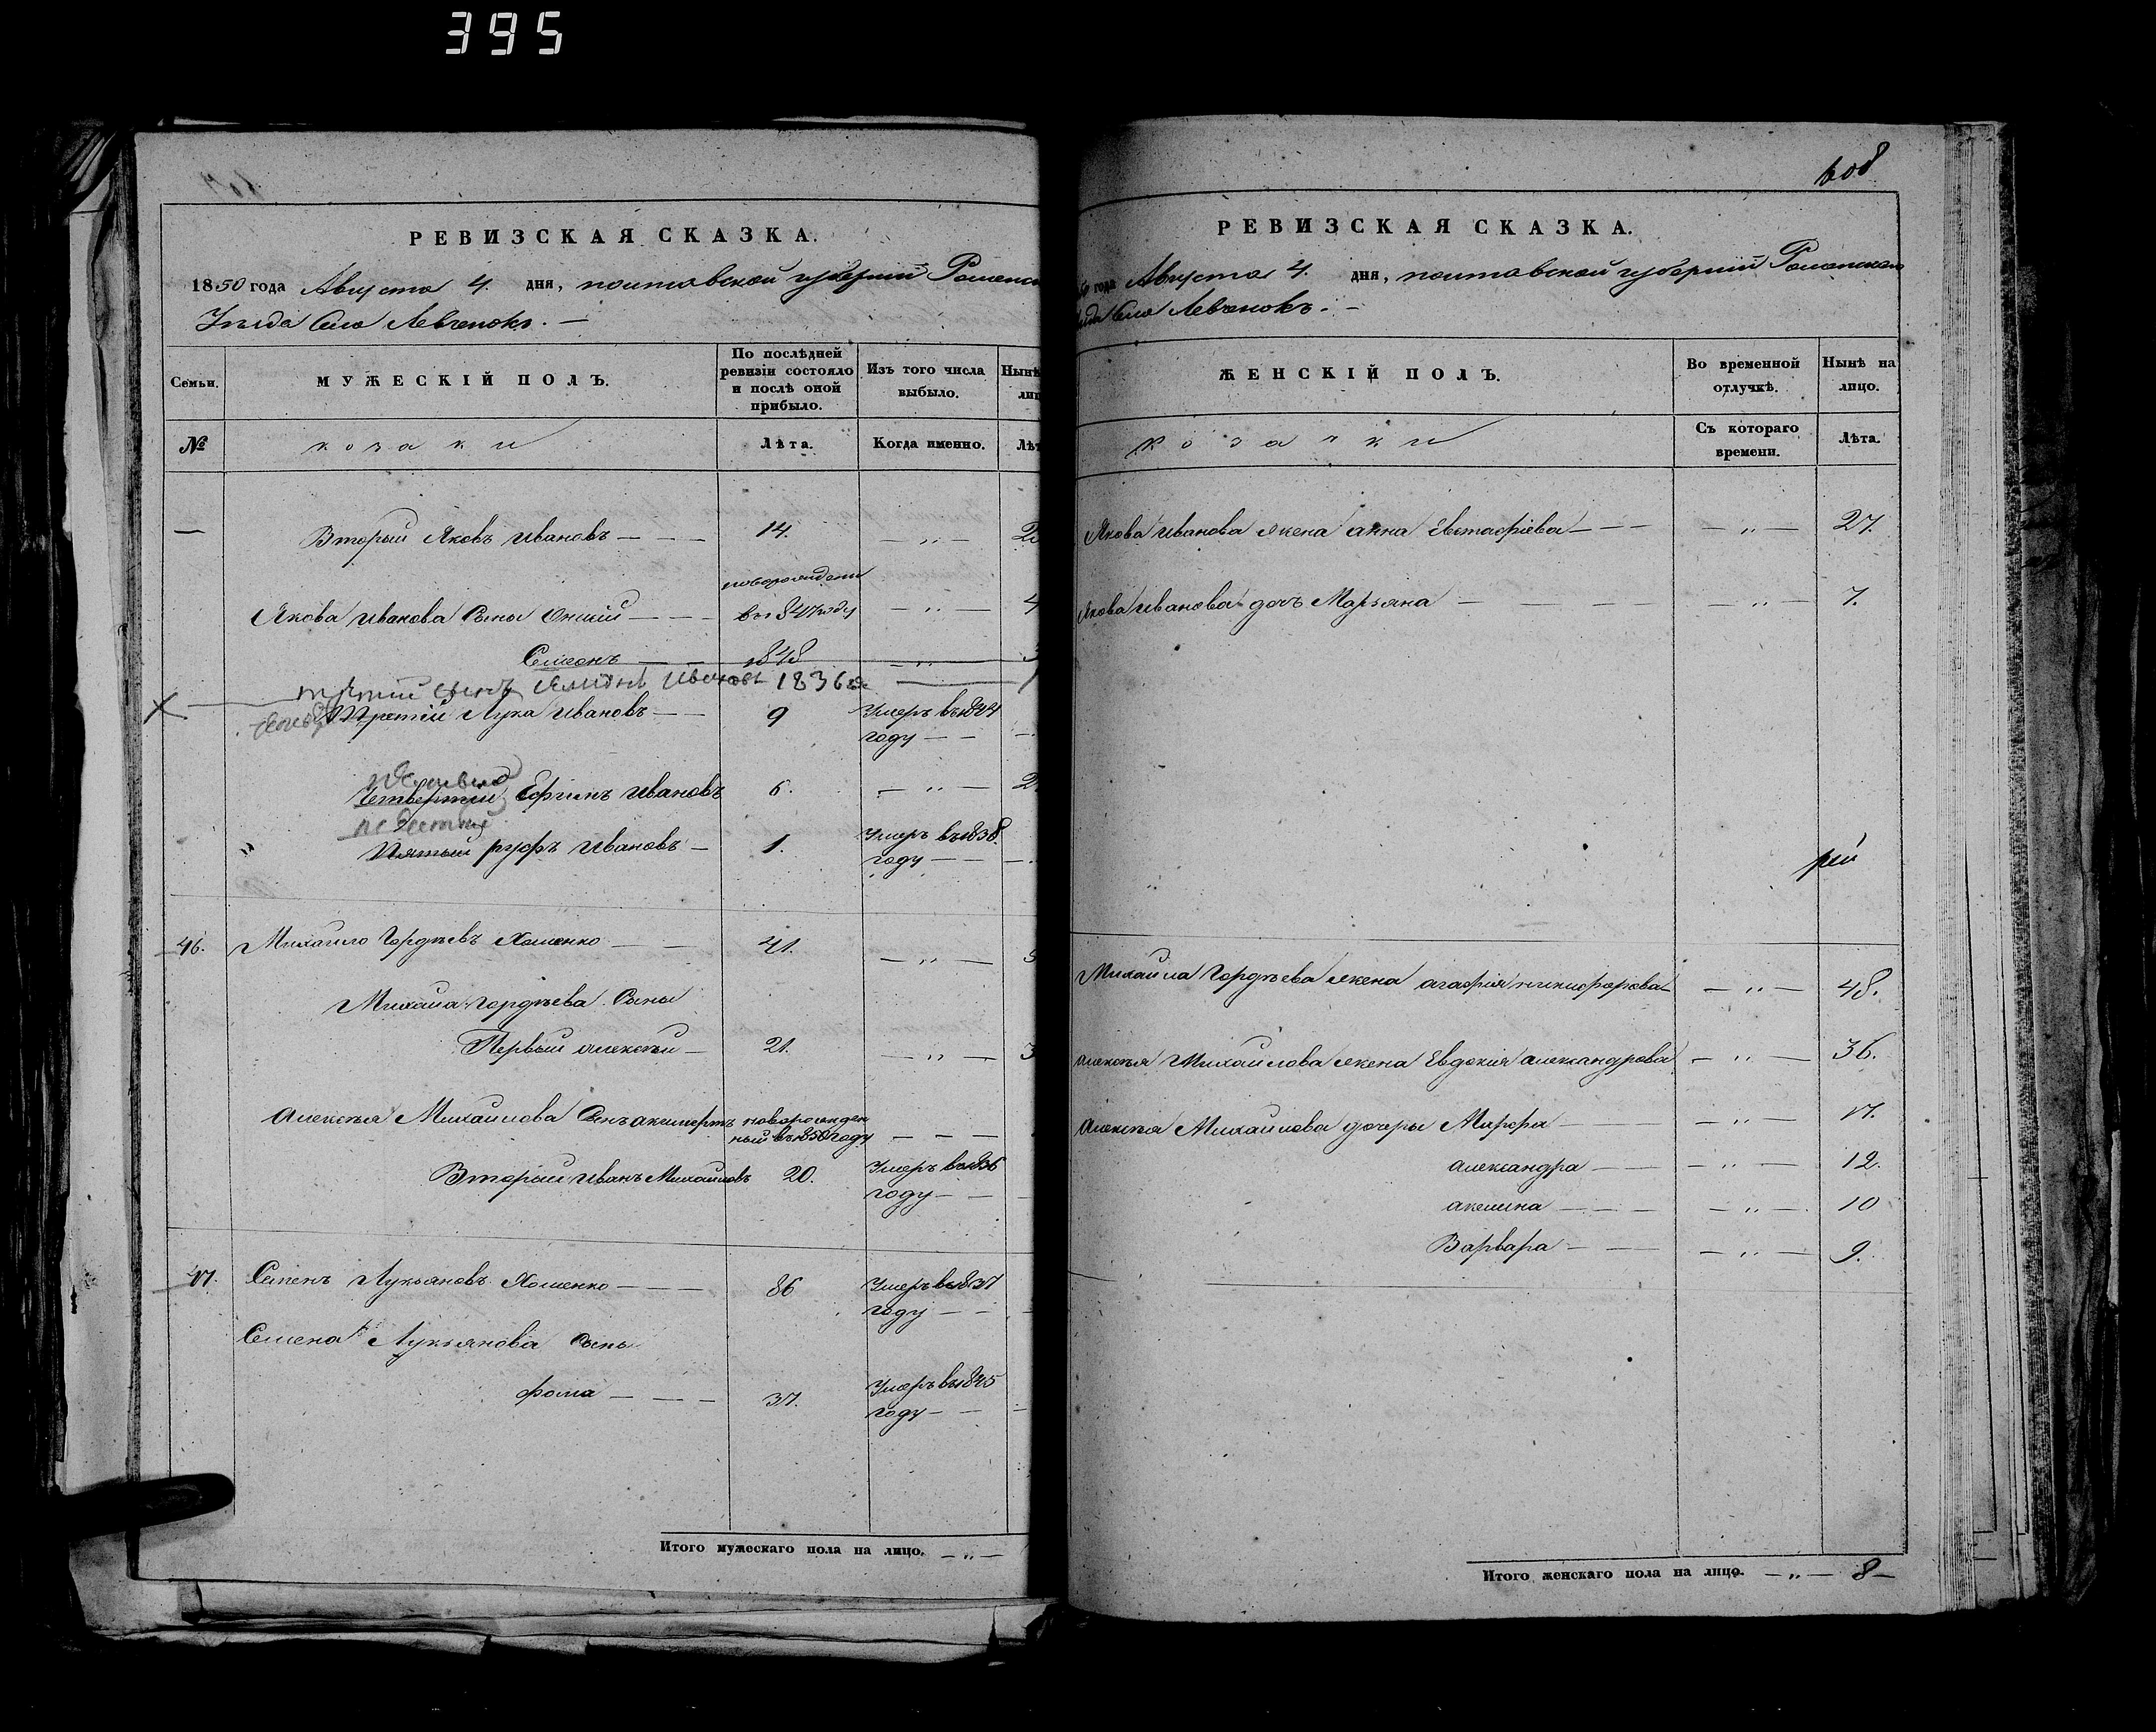 395
РЕВИЗСКАЯ СКАЗКА.
1850 года Августа 4. дня, полтавской губернии Роменск
Уезда Села Левченокъ. —
Семьи.
МУЖЕСКІЙ ПОЛЪ.
По послѣдней ревизіи состояло и послѣ оной прибыло.
Изъ того числа выбыло.
Нынѣ
№
козаки
Лѣта.
Когда именно.
— Вторый Яковъ Ивановъ — — — 14. — „ —
новорожден
Якова Иванова Сыны — — — въ 1847 году — „ — 4
Семенъ — — 1848 — „ — 3
третій сынъ Ивановъ 1836
Третій Лука Ивановъ — — 9 Умеръ въ 1844
году — —
Четвертый Ефимъ Ивановъ 6. — „ — 2
Пятый руфъ Ивановъ — 1. Умеръ въ 1838.
году — —
46. Михайло Гордѣевъ Хоменко — — 41. — „ —
Михайла Гордѣева Сыны
Первый алексѣй — 21. — „ — 3
алексѣя Михайлова Сынъ новорожден
ный въ 1850 году — — —
Вторый Иванъ Михайловъ 20. Умеръ въ 1836
году — —
47. Семенъ Лукьяновъ Хоменко — — — 86 Умеръ въ 1837
году — —
Семена Лукьянова Сынъ
фома — — — 37. Умеръ въ 1845
году — —
Итого мужескаго пола на лицо. — „ —
608
РЕВИЗСКАЯ СКАЗКА.
года Августа 4. дня, полтавской губернии Роменского
Села Левченокъ. —
ЖЕНСКІЙ ПОЛЪ.
Во временной отлучкѣ.
Нынѣ на лицо.
козачки
Съ котораго времени.
Лѣта.
Якова Иванова жена анна Евстафіева — — — „ — 27.
Якова Иванова дочь Марьяна — — — „ — 7.
Михайла Гордѣева жена агафія никифорова — — „ — 48.
алексѣя Михайлова жена Евдокия александрова — „ — 36.
алексѣя Михайлова дочери Марфа — — — „ — 17.
александра — — — „ — 12.
акилина — — — — „ — 10
Варвара — — — „ — 9.
Итого женскаго пола на лицо. — „ — 8 —